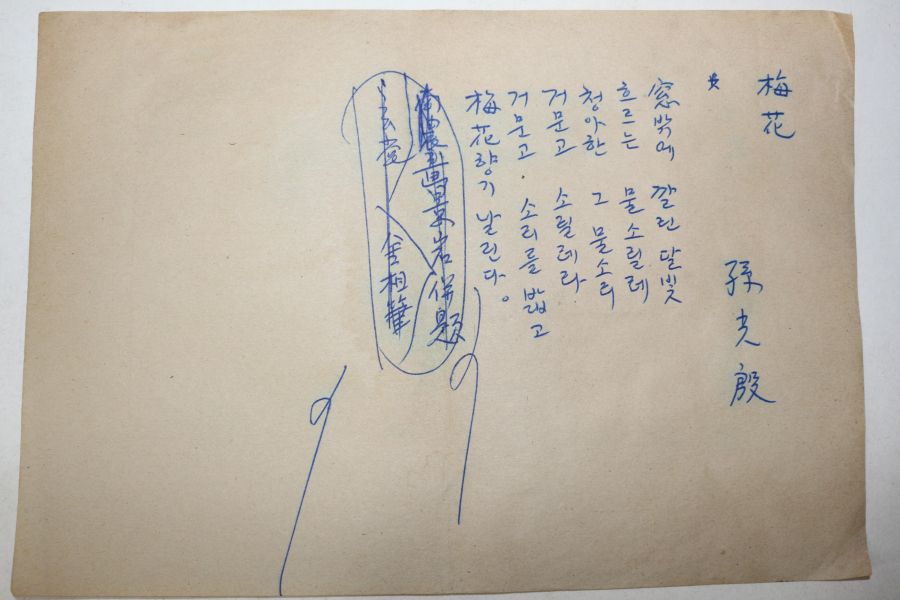 梅花
孫光殷
窓밖에 깔린 달빛
흐르는 물소릴레
청아한 그 물소리
거문고 소릴레라
거문고. 소리를 밟고
梅花향기 날린다。
岩併題
金相筆